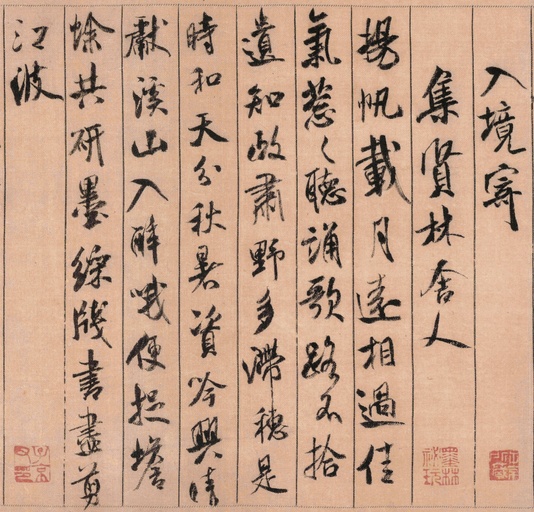 入境寄
集賢林舍人
揚帆載月遠相過佳
氣葱〻聽誦歌路不拾
遺知政肅野多滯穗是
時和天分秋暑資吟興晴
獻溪山入醉哦便捉蟾
蜍共研墨綵牋書盡剪
江波
墨林秘玩